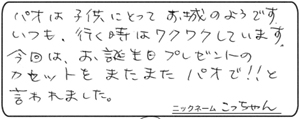 パオは子供にとってお城のようです
いつも、行く時はワクワクしています。
今回は、お誕生日プレゼントの
カセットをまたまたパオで!!と
言われました。
ニックネーム こっちゃん